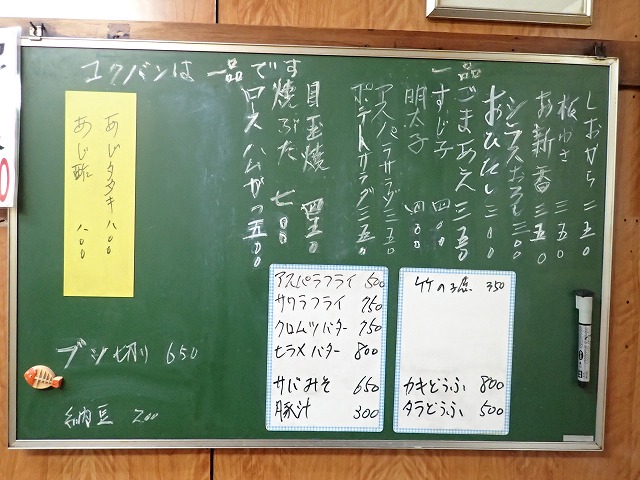 コクバンは一品です
一品
しおから 二五〇
板わさ 三五〇
お新香 三五〇
シラスおろし 三〇〇
おひたし 三〇〇
ごまあえ 三五〇
すじ子 四〇〇
明太子 四〇〇
アスパラサラダ 三五〇
ポテトサラダ 三五〇
目玉焼 四五〇
焼ぶた 七〇〇
ロースハムカツ 五〇〇
あじタタキ 八〇〇
あじ酢 八〇〇
ブツ切り 650
納豆 200
アスパラフライ 500
サワラフライ 750
クロムツバター 750
ヒラメバター 800
サバみそ 650
豚汁 300
竹の子煮 350
カキどうふ 800
タラどうふ 500